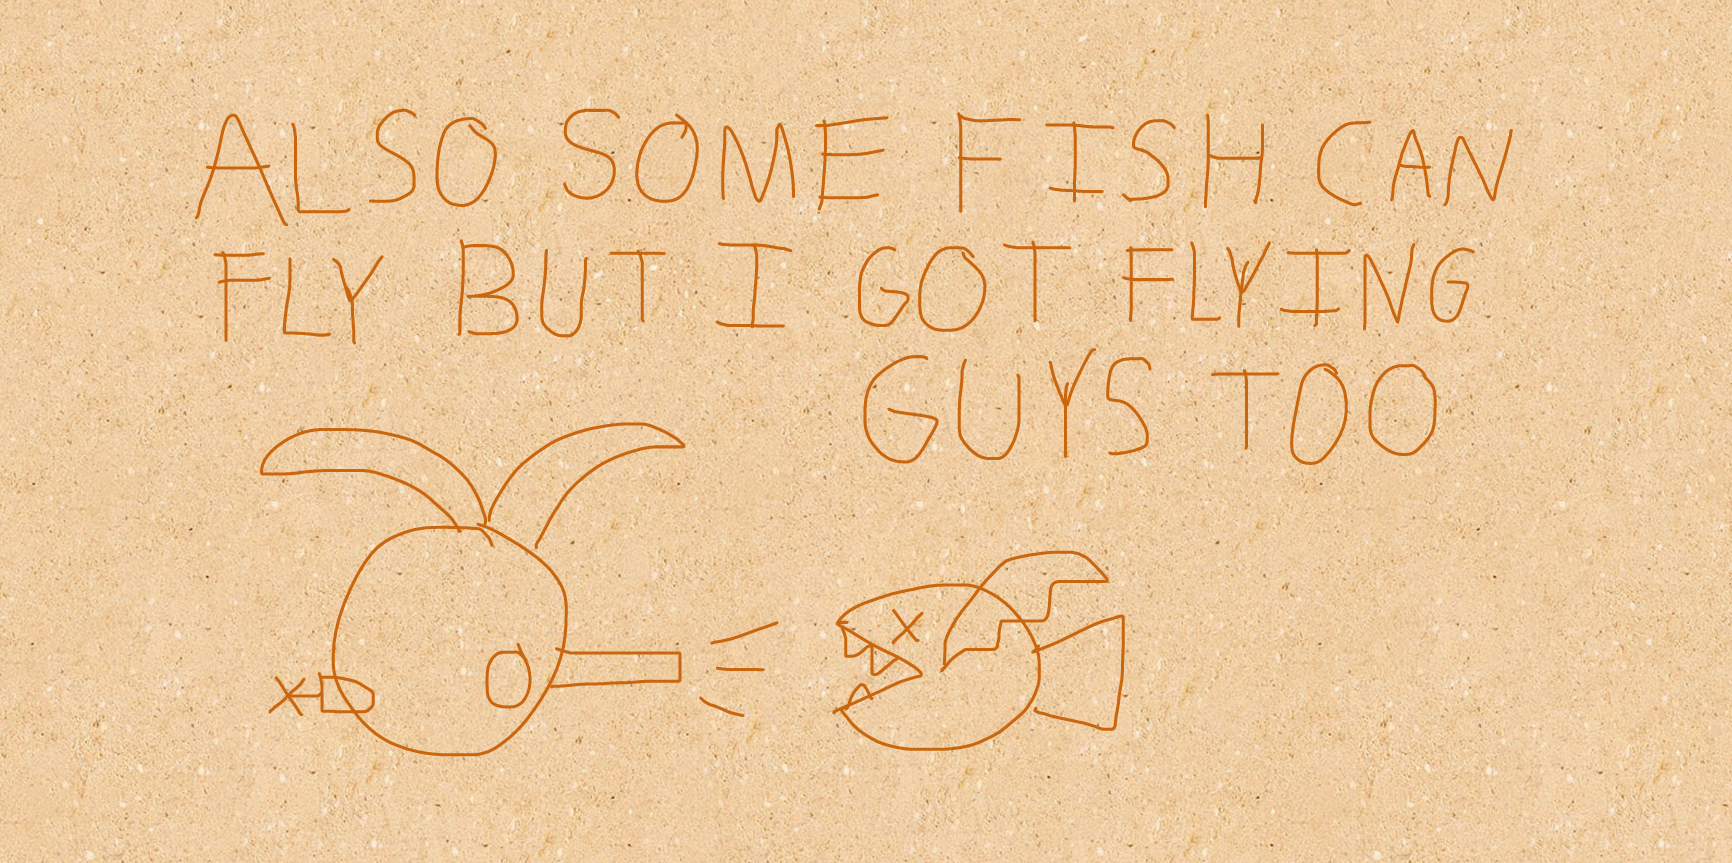 ALSO SOME FISH CAN
FLY BUT I GOT FLYING
GUYS TOO